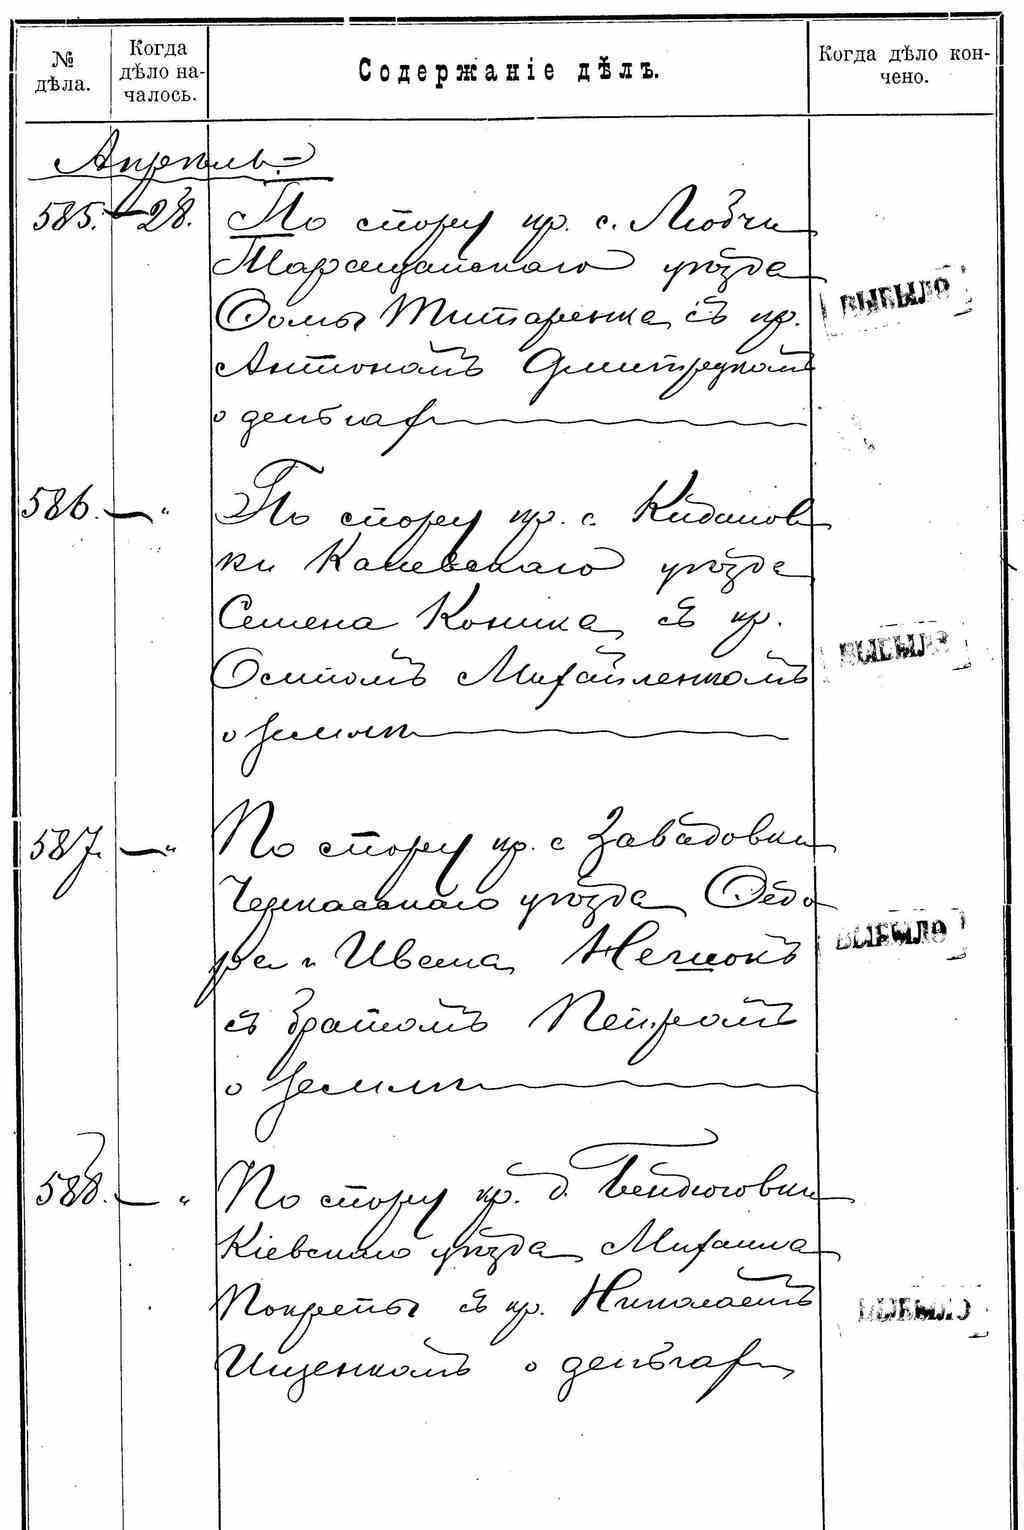 № дѣла.
Когда дѣло началось.
Содержаніе дѣлъ.
Когда дѣло кончено.
Апрѣль.
585. 28. По спору кр. с. Любчи
Таращанскаго уѣзда
Ѳомы Титаренка съ кр.
Антономъ Дмитруномъ
о деньгах
ВЫБЫЛО
586. — " По спору кр. с. Кидановки
Каневскаго уѣзда
Семена Коника съ кр.
Осипомъ Михайленкомъ
о землѣ
ВЫБЫЛО
587. — " По спору кр. с Завадовки
Черкасскаго уѣзда Ѳедо
ра и Ивана
съ братомъ Петромъ
о землѣ
ВЫБЫЛО
588. — " По спору кр. д. Бендюговки
Кіевскаго уѣзда Михаила
Покрепы съ кр. Николаемъ
Ищенкомъ о деньгах
ВЫБЫЛО